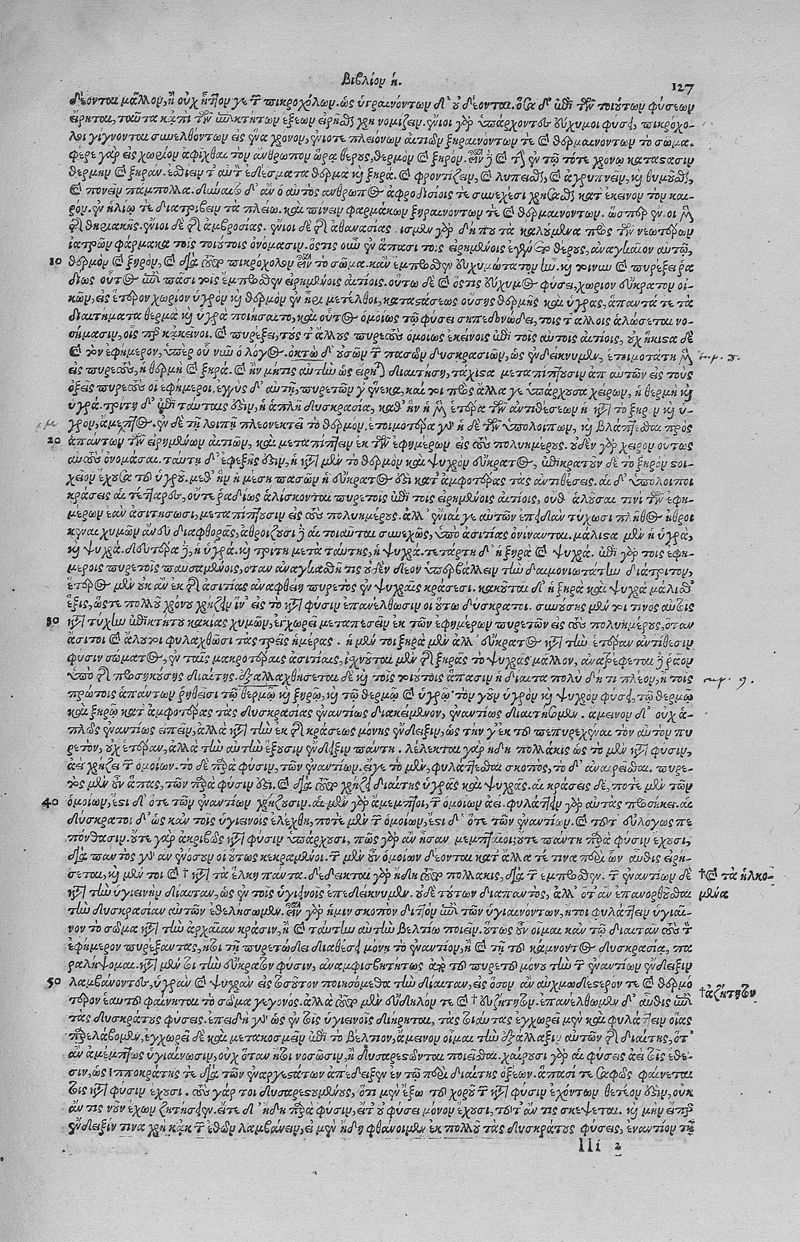 Βιβλίον η. 127
δέονται μᾶλλον, ἢ οὐχ ἧττον γε τ πικροχόλων. ὡς ὑγραινόντων δέονται. ὅσα δ' ἐπὶ τῶν τοιούτων φύσεων
εἴρηται, ταῦτα κἀπὶ τῶν ἐπικτήτων ἕξεων εἰρῆσθαι χρὴ νομίζειν. ἔνιοι γὰρ ὑπάρχοντες εὔχυμοι φύσει, πικρόχο-
λοι γίγνονται συνελθόντων εἰς ἕνα χρόνον, ἐνίοτε πλειόνων αἰτίων ξηραινόντων τε καὶ θερμαινόντων τὸ σῶμα.
φέρε γὰρ εἰς χωρίον ἀφῖχθαι τὸν ἄνθρωπον ὥρα θέρους, θερμὸν καὶ ξηρόν. εἶναι δὲ καὶ τὴν ἐν τῷ τότε χρόνῳ κατάστασιν
θερμὴν καὶ ξηράν. ἐσθίειν τ' αὖ τ' ἐδέσματα θερμὰ καὶ ξηρά. καὶ φροντίζειν, καὶ λυπεῖσθαι, καὶ ἀγρυπνεῖν, καὶ θυμοῦσθαι,
καὶ πονεῖν πάμπολλα. δύναιτο δ' ἂν ὁ αὐτὸς ἄνθρωπος ἀφροδισίοις τε συνεχέσι χρῆσθαι κατ' ἐκεῖνον τὸν και-
ρόν. ἐν ἡλίῳ τε διατρίβειν τὰ πλείω. καὶ πίνειν φαρμάκων ξηραινόντων τε καὶ θερμαινόντων. ὥσπερ ἔνιοι μὲν
τῆς θηριακῆς. ἔνιοι δὲ τῆς ἀμβροσίας. ἔνιοι δὲ τῆς ἀθανασίας. ἴσμεν γὰρ δή που τὰ καλούμενα πρὸς τῶν νεωτέρων
ἰατρῶν φάρμακα τοῖς τούτοις ὀνόμασιν. ὅστις οὖν ἐν ἅπασι τοῖς εἰρημένοις θέρους, ἀναγκαῖον αὐτῷ,
10 θερμὸν καὶ ξηρὸν, καὶ διὰ τοῦτο πικρόχολον εἶναι τὸ σῶμα. κἂν ἔμπροσθεν εὐχυμώτατον ᾖ. καὶ τοίνυν καὶ πυρέξει ῥᾳ
δίως οὗτος ἐπὶ πᾶσι τοῖς ἔμπροσθεν εἰρημένοις αἰτίοις. οὕτω δὲ καὶ ὅστις εὔχυμος φύσει, χωρίον εὔκρατον οἰ-
κῶν, εἰς ἕτερον χωρίον ὑγρὸν καὶ θερμὸν ἐν ἦρι μετέλθοι, καταστάσεως οὔσης θερμῆς καὶ ὑγρᾶς, ἅπαντά τε τὰ
διαιτήματα θερμὰ καὶ ὑγρὰ ποιήσαιτο, καὶ οὗτος ὁμοίως τῷ φύσει σηπεδονώδει, τοῖς τ' ἄλλοις ἁλώσεται νο-
σήμασιν, οἷς περ κἀκεῖνοι. καὶ πυρέξει, τούς τ' ἄλλους πυρετοὺς ὁμοίως ἐκείνοις ἐπὶ τοῖς αὐτοῖς αἰτίοις, οὐχ ἥκιστα δὲ
καὶ τὸν ἐφήμερον, ὑπὲρ οὗ νῦν ὁ λόγος. ὀκτὼ δ' οὐσῶν τ πασῶν δυσκρασιῶν, ὡς ἐδείκνυμεν, ἑτοιμοτάτη μὲν
εἰς πυρετοὺς, ἡ θερμὴ καὶ ξηρά. καὶ ἣν μή τις αὐτὴν ὡς εἴρηται διαιτήσῃ, τάχιστα μεταπίπτουσιν ἀπ' αὐτῶν εἰς τοὺς
ὀξεῖς πυρετοὺς οἱ ἐφήμεροι. ἐγγὺς δ' αὐτῇ, πυρετῶν γ' ἕνεκα, καί τοι πρὸς ἄλλα γε ὑπάρχουσα χείρων, ἡ θερμὴ καὶ
ὑγρά. τρίτη δ' ἐπὶ ταύταις ἐστὶν, ἡ ἁπλῆ δυσκρασία, καθ' ἣν ἡ μὲν ἑτέρα τῶν ἀντιθέσεων ἡ κατὰ τὸ ξηρὸν καὶ ὑ-
γρὸν, ἄμεμπτος. ἐν δὲ τῇ λοιπῇ πλεονεκτεῖ τὸ θερμόν. ἑτοιμοτέρα γὰρ ἥδε τῶν ὑπολοίπων, καὶ βλάπτεσθαι πρὸς
20 ἁπάντων τῶν εἰρημένων αἰτίων, καὶ μεταπίπτειν ἐκ τῶν ἐφημέρων εἰς τοὺς πολυημέρους. οὐδὲν γὰρ χεῖρον οὕτως
αὐτοὺς ὀνομάσαι. ταύτῃ δ' ἐφεξῆς ἐστὶν, ἡ κατὰ μὲν τὸ θερμὸν καὶ ψυχρὸν εὔκρατος, ἐπικρατοῦν δὲ τὸ ξηρὸν στοι-
χεῖον ἔχουσα τοῦ ὑγροῦ. μεθ' ἣν ἡ μέση πασῶν ἡ εὔκρατός ἐστι κατ' ἀμφοτέρας τὰς ἀντιθέσεις. αἱ δ' ὑπόλοιποι
κράσεις αἱ τέτταρες, οὔτε ῥᾳδίως ἁλίσκονται πυρετοῖς ἐπὶ τοῖς εἰρημένοις αἰτίοις, οὔθ' ἁλοῦσαί τινι τῶν ἐφη-
μέρων ἐὰν ἀσιτήσωσι, μεταπίπτουσιν εἰς τοὺς πολυημέρους. ἀλλ' ἔνιαί γε αὐτῶν ἐπειδὰν τύχωσι πλῆθος ἠθροι
κυῖαι χυμῶν ἄνευ διαφθορᾶς, ἀθροίζουσι δ' αἱ τοιαῦται συνεχῶς, ὑπὸ ἀσιτίας ὀνίνανται. μάλιστα μὲν ἡ ὑγρὰ,
καὶ ψυχρά. δευτέρα δὲ, ἡ ὑγρά. καὶ τρίτη μετὰ ταύτης, ἡ ψυχρά. τετάρτη δ' ἡ ξηρὰ καὶ ψυχρά. ἐπὶ γὰρ τοῖς ἐφη-
μέροις πυρετοῖς παυσαμένοις, ὅταν ἀναγκασθῇ τις οὐδὲν δέον ὑπερβάλλειν τὴν δαιμονιωτάτην διάτριτον,
ἕτερος μὲν οὐκ ἂν ἐκ τῆς ἀσιτίας ἀναφθείη πυρετὸς ἐν ψυχραῖς κράσεσι. κακοῦται δ' ἡ ξηρὰ καὶ ψυχρὰ μάλισθ'
ἕξις, ὥστε πολλοῦ χρόνου χρῄζειν ἵν' εἰς τὸ κατὰ φύσιν ἐπανέλθωσιν οἱ οὕτω δύσκρατοι. συνούσης μέν τοι τινος αὖθις
30 κατὰ τύχην ἐπικτήτου κακίας χυμῶν, ἐγχωρεῖ μεταπεσεῖν ἐκ τῶν ἐφημέρων πυρετῶν εἰς τοὺς πολυημέρους, ὅταν
ἄσιτοι καὶ ἄλουτοι φυλαχθῶσι τὰς τρεῖς ἡμέρας. ἡ μέν τοι ξηρὰ μὲν ἀλλ' εὔκρατος κατὰ τὴν ἑτέραν ἀντίθεσιν
φύσιν σώματος, ἐν ταῖς μακροτέραις ἀσιτίαις, ἰσχνοῦται μὲν τῆς ξηρᾶς τὸ ψυχρᾶς μᾶλλον, ἀνατρέφεται δὲ ῥᾷον
ὑπὸ τῆς προσηκούσης διαίτης. ἐξαλλαχθήσεται δὲ καὶ τοῖς τοιούτοις ἅπασιν ἡ δίαιτα πολὺ δή τι πλέον, ἢ τοῖς
πρώτοις ἁπάντων ῥηθεῖσι τῷ θερμῷ καὶ ξηρῷ, καὶ τῷ θερμῷ καὶ ὑγρῷ. τὸν γοῦν ὑγρὸν καὶ ψυχρὸν φύσει, τῷ θερμῷ
καὶ ξηρῷ κατ' ἀμφοτέρας τὰς δυσκρασίας ἐναντίως διακείμενον, ἐναντίως διαιτήσομεν. ἄμεινον δ' οὐχ ἁ-
πλῶς ἐναντίως εἰπεῖν, ἀλλὰ κατὰ τὴν ἐκ τῆς κράσεως μόνης ἔνδειξιν, ὡς τήν γ' ἐκ τοῦ πεπυρεχέναι τὸν αὐτὸν πυ
ρετὸν, οὐχ ἑτέραν, ἀλλὰ τὴν αὐτὴν ἕξουσιν ἔνδειξιν πάντη. λέλεκται γὰρ ἤδη πολλάκις ὡς τὸ μὲν κατὰ φύσιν,
ἀεὶ χρῄζει τ ὁμοίων. τὸ δὲ παρὰ φύσιν, τῶν ἐναντίων. εἴγε τὸ μὲν, φυλάττεσθαι σκοπὸς, τὸ δ' ἀναιρεῖσθαι. πυρε-
τὸς μὲν οὖν ἅπας, τῶν παρὰ φύσιν ἐστί. καὶ διὰ τοῦτο χρῄζει διαίτης ὑγρᾶς καὶ ψυχρᾶς. αἱ κράσεις δὲ, ποτὲ μὲν τῶν
40 ὁμοίων, ἔστι δ' ὅτε τῶν ἐναντίων χρῄζουσιν. αἱ μὲν γὰρ ἄμεμπτοι, τ ὁμοίων ἀεί. φυλάττειν γὰρ αὐτὰς προσήκει. αἱ
δύσκρατοι δ' ὡς κἀν τοῖς ὑγιεινοῖς ἐλέχθη, ποτὲ μὲν τ ὁμοίων, ἔστι δ' ὅτε τῶν ἐναντίων. καὶ τοῦτ' εὐλόγως πε-
πόνθασιν. οὔτε γὰρ ἀκριβῶς κατὰ φύσιν ὑπάρχουσι, πῶς γὰρ ἂν ἦσαν μεμπταί; οὔτε πάντη παρὰ φύσιν ἔχουσι,
διὰ παντὸς γὰρ ἂν ἐνόσουν οἱ οὕτως κεκραμένοι. τ μὲν οὖν ὁμοίων δέονται κατ' ἄλλα τέ τινα περὶ ὧν αὖθις εἰρή-
σεται, καὶ μέν τοι καὶ † κατὰ τὰ ἕλκη πάντα. δέδεικται γὰρ ἤδη τοῦτο πολλάκις, διὰ τ ἔμπροσθεν. τ ἐναντίων δὲ †καὶ τὰ ἡλκω-
κατὰ τὴν ὑγιεινὴν δίαιταν, ὡς ἐν τοῖς ὑγιεινοῖς ἐπεδείκνυμεν. οὐδὲ τούτων διαπαντὸς, ἀλλ' ὅταν ἐπανορθοῦσθαι μένα
τὴν δυσκρασίαν αὐτῶν ἐθελήσωμεν. εἶναι γὰρ ἡμῖν σκοπὸν διττὸν ἐπὶ τῶν ὑγιαινόντων, ἤτοι φυλάττειν ὑγιαῖ-
νον τὸ σῶμα κατὰ τὴν ἀρχαίαν κρᾶσιν, ἢ καὶ ταύτην αὐτὴν βελτίω ποιεῖν. οὕτως οὖν οἶμαι κἂν τῷ διαιτᾶν τοὺς τ
ἐφήμερον πυρέξαντας, ἤτοι τῇ πυρετώδει διαθέσει μόνῃ τὸ ἐναντίον, ἢ καὶ τῇ τοῦ κάμνοντος δυσκρασίᾳ, πα
ραλήψομαι. κατὰ μέν τοι τὴν εὔκρατον φύσιν, ἀναμφισβητήτως παρὰ τοῦ πυρετοῦ μόνου τὴν τ ἐναντίων ἔνδειξιν
50 λαμβάνοντες, ὑγρὰν καὶ ψυχρὰν εἰς τοσοῦτον ποιησόμεθα τὴν δίαιταν, εἰς ὅσον ἂν αὐχμωδέστερόν τε καὶ θερμό
τερον ἑαυτοῦ φαίνηται τὸ σῶμα γεγονός. ἀλλὰ τοῦτο μὲν εὔδηλόν τε καὶ †εὐζήτητον. ἐπανέλθωμεν δ' αὖθις ἐπὶ †ἀζήτητον
τὰς δυσκράτους φύσεις. ἐπειδὴ γὰρ ὡς ἐν τοῖς ὑγιεινοῖς διῄρηται, τὰς τοιαύτας ἐγχωρεῖ μὲν καὶ φυλάττειν οἵας
παρελάβομεν, ἐγχωρεῖ δὲ καὶ μετακοσμεῖν ἐπὶ τὸ βέλτιον, ἄμεινον οἶμαι τὴν ἐξάλλαξιν αὐτῶν τῆς διαίτης, ὅτ'
ἂν ἀμέμπτως ὑγιαίνωσιν, οὐχ ὅταν ἤτοι νοσῶσιν, ἢ δυσαρεστῶνται ποιεῖσθαι. χαίρουσι γὰρ αἱ φύσεις ἀεὶ τοῖς ἔθε-
σιν, ὡς Ἱπποκράτης τε διὰ τῶν ἐναργεστάτων ἀπέδειξεν ἐν τῷ περὶ διαίτης ὀξέων. ἅπασί τε σαφῶς φαίνεται
τοῖς κατὰ φύσιν ἔχουσι. τοὺς γάρ τοι δυσαρεστουμένους, ὅτι μὲν ἔξω τοῦ χοροῦ τ κατὰ φύσιν ἐχόντων θετέον ἐστὶν, οὐκ
ἄν τις νοῦν ἔχων ζητήσειεν. εἴτε δ' ἤδη παρὰ φύσιν, εἴτ' οὐ φύσει μόνον ἔχουσι, τοῦτ' ἄν τις σκέψεται. καὶ μὴν εἴπερ
ἔνδειξίν τινα χρὴ κἀκ τ ἐθῶν λαμβάνειν, εἰ μὲν ἤδη φθάνοιμεν ἐκ πολλοῦ τὰς δυσκράτους φύσεις, ἐναντίον τῇ
lll 2